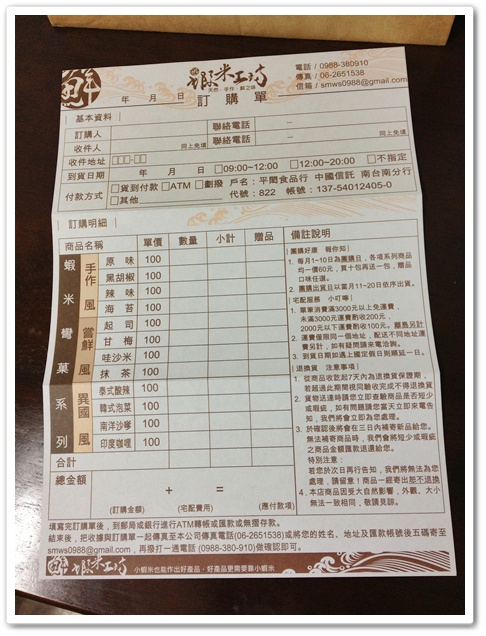 鮮
蝦米工坊
天然‧手作‧鮮之味
電話 / 0988-380910
傳真 / 06-2651538
信箱 / smws0988@gmail.com
年 月 日 訂購單
基本資料
訂購人 聯絡電話 －
收件人 同上免填 聯絡電話 － 同上免填
收件地址 □□□-□□
到貨日期 年 月 日 □09:00~12:00 □12:00~20:00 □不指定
付款方式 □貨到付款 □ATM □劃撥 戶名：平閎食品行 中國信託 南台南分行
□其他 代號：822 帳號：137-54012405-0
訂購明細
商品名稱 單價 數量 小計 贈品 備註說明
蝦米彎菓系列
手作風
原味 100
黑胡椒 100
辣味 100
海苔 100
嘗鮮風
起司 100
甘梅 100
哇沙米 100
抹茶 100
異國風
泰式酸辣 100
韓式泡菜 100
南洋沙嗲 100
印度咖哩 100
合計
總金額 + =
(訂購金額) (宅配費用) (應付款項)
團購好康 報你知
1. 每月1~10日為團購日，各項系列商品
均一價60元，買十包再送一包，贈品
口味任選。
2. 團購出貨且以當月11~20日依序出貨。
宅配服務 小叮嚀
1. 單筆消費滿3000元以上免運費，
未滿3000元運費酌收200元，
2000元以下運費酌收100元。離島另計
2. 運費僅限同一個地址，配送不同地址運
費另計，如有疑問請來電洽詢。
3. 到貨日期如遇上國定假日則順延一日。
退換貨 注意事項
1. 從商品收訖起7天內為退換貨保證期，
若超過此期間視同驗收完成不得退換貨
2. 貨物送達時請您立即查驗商品是否短少
或瑕疵，如有問題請您當天立即來電告
知，我們將會立即為您處理。
3. 於確認後將會在三日內補寄新品給您。
無法補寄商品時，我們會將短少或瑕疵
之商品金額匯款退還給您。
特別注意：
若您於次日再行告知，我們將無法為您
處理，請留意！商品一經寄出恕不退換
4. 本店商品因受大自然影響，外觀、大小
無法一致相同，敬請見諒。
填寫完訂購單後，到郵局或銀行進行ATM轉帳或匯款或無摺存款。
結束後，把收據與訂購單一起傳真至本公司傳真電話(06-2651538)或將您的姓名、地址及匯款帳號後五碼寄至
smws0988@gmail.com，再撥打一通電話 (0988-380-910)做確認即可。
鮮 蝦米工坊 小蝦米也能作出好產品‧好產品更需要靠小蝦米